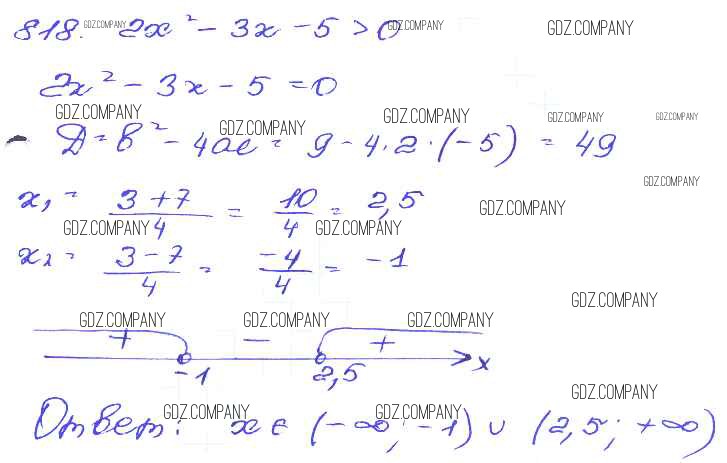 818. GDZ.COMPANY 2x² - 3x - 5 > 0 GDZ.COMPANY GDZ.COMPANY
2x² - 3x - 5 = 0
GDZ.COMPANY GDZ.COMPANY GDZ.COMPANY GDZ.COMPANY GDZ.COMPANY
D = b² - 4ac = 9 - 4·2·(-5) = 49
GDZ.COMPANY
x₁ = (3+7)/4 = 10/4 = 2,5 GDZ.COMPANY
GDZ.COMPANY GDZ.COMPANY
x₂ = (3-7)/4 = -4/4 = -1
GDZ.COMPANY
GDZ.COMPANY GDZ.COMPANY GDZ.COMPANY
+ - +
-1 2,5 x
GDZ.COMPANY
GDZ.COMPANY GDZ.COMPANY
Ответ: x ∈ (-∞; -1) ∪ (2,5; +∞)